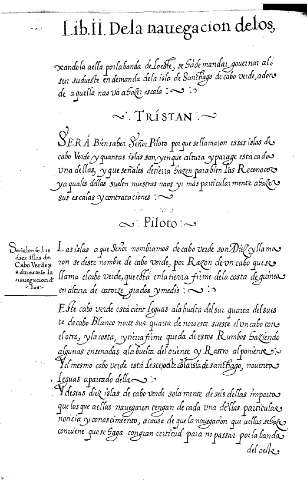 Lib. II. De la nauegacion de los,
xandola a ella por la banda de Loeste, se ha de mandar gouernar al
sur sudueste en demanda de la isla de Santiago de cabo verde, adon
de aquella nao va a hazer escala :~
TRISTAN
SERA bien saber Señor Piloto por que se llamaron estas islas de
cabo Verde y quantas islas son, y en que altura y parage esta cada
una dellas, y que señales deuieran hazer para bien las Reconocer
y a quales dellas suelen nuestras naos yr mas particularmente a hazer
sus escalas y contrataciones :~
Piloto
LAS islas a que Señor nombramos de cabo verde son Diez y llama
ron se deste nombre de cabo verde, por Razon de un cabo que se
llama el cabo Verde, que está en la tierra firme de la costa de guinea
en altura de catorze grados y medio :~
Este cabo Verde está cien leguas a la buelta del sur quarta del sues
te de cabo Blanco
otro, y la costa, y tierra firme queda de estos Rumbos haziendo
algunas ensenadas a la buelta del oriente y Rostro al poniente
Y el mismo cabo verde está
leguas apartado della :~
Y destas diez islas de cabo verde sola mente de seis dellas importa
que los que a ellas nauegaren tengan de cada una dellas particular
noticia y conoscimiento, a causa de que la nauegacion que a ellas
conuiene que se haga con gran certitud para ni passar por la banda
del oeste
Cabo Verde y
nauegacion